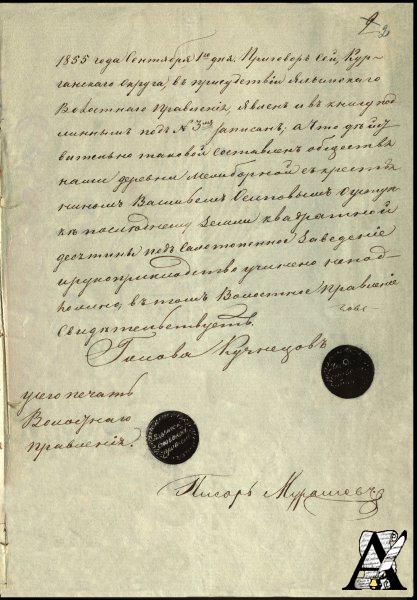 2
1855 года Сентября 1го дня. Приговоръ сей, Кур-
ганскаго Округа, въ присудствіи
Волостнаго Правленія, явленъ и въ книгу под
линнымъ подъ № 3мъ записанъ, а что дѣйст
вительно таковой составленъ обществомъ
нашей деревни съ крестья
ниномъ Осиповымъ
къ земли квадратной
десятины подъ Салотопенное Заведеніе
и рукоприкладство учинено
въ томъ Волостное Правленіе
Свидѣтельствуетъ.
Голова Кузнецовъ
у сего печать
Волостнаго
Правленія.
Писарь Мурашевъ
А